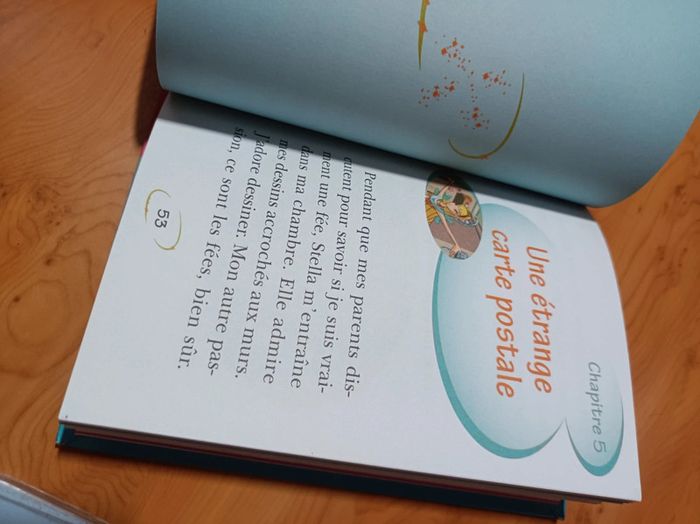 Chapitre 5
Une étrange
carte postale
Pendant que mes parents dis-
cutent pour savoir si je suis vrai-
ment une fée, Stella m'entraîne
dans ma chambre. Elle admire
mes dessins accrochés aux murs.
J'adore dessiner. Mon autre pas-
sion, ce sont les fées, bien sûr.
53